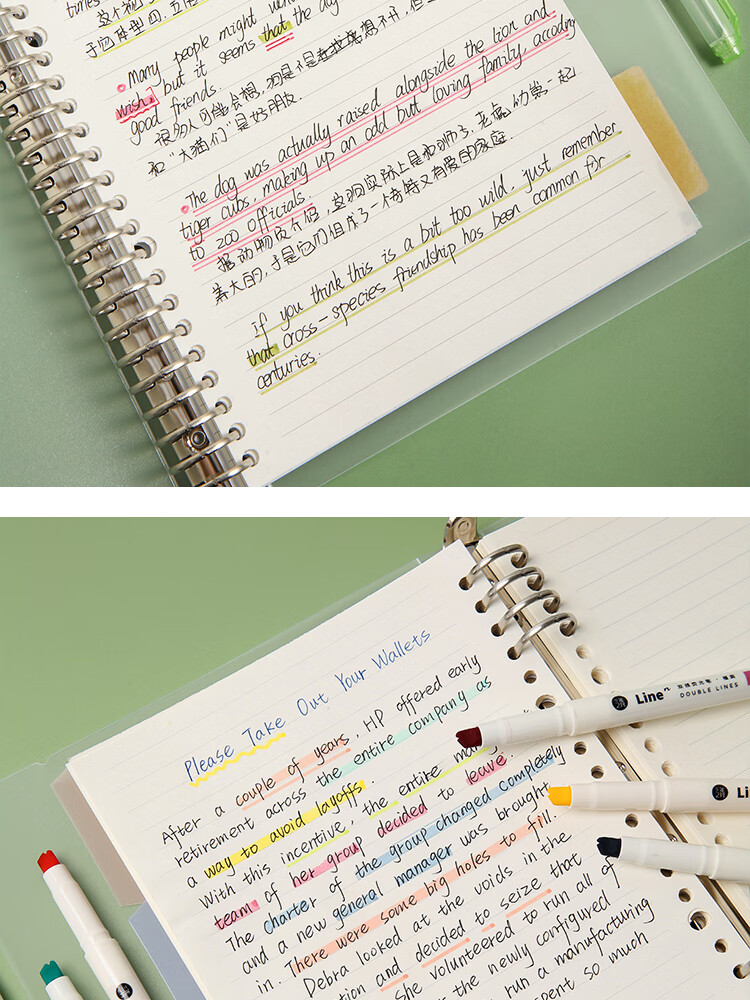 times
这个视
于它体型
Many people might
wish, but it seems that the dog
good friends.
很多人可能会想,
和“大猫们”是好朋友.
The dog was actually raised alongside the lion and
tiger cubs, making up an odd but loving family, according
to 200 officials.
据动物园介绍, 这狗实际上是和狮子、老虎幼崽一起
养大的,于是它们组成了一个奇特又有爱的家庭.
If you think this is a bit too wild, just remember
that cross-species friendship has been common for
centuries.
Please Take Out Your Wallets
After a couple of years, HP offered early
retirement across the entire company as
a way to avoid layoffs.
With this incentive, the entire
team of her group decided to leave.
The charter of the group changed completely
and a new general manager was brought
in. There were some big holes to fill.
Debra looked at the voids in the
and decided to seize that
She volunteered to run all of
the newly configured
run a manufacturing
spent so much
Line
DOUBLE LINES
Li
Li